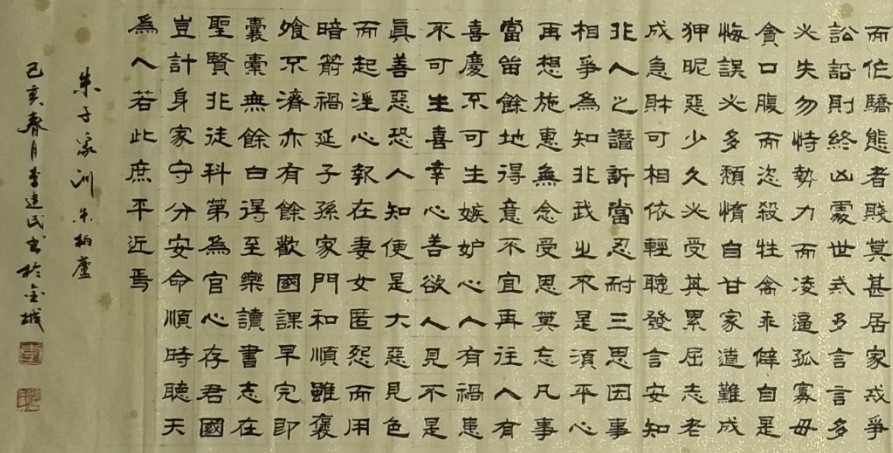 而作驕態者賤莫甚居家戒爭
訟訟則終凶處世戒多言言多
必失勿恃勢力而凌逼孤寡毋
貪口腹而恣殺牲禽乖僻自是
悔誤必多頹惰自甘家道難成
狎昵惡少久必受其累屈志老
成急財可相依輕聽發言安知
非人之譖訴當忍耐三思因事
相爭為知非我之不是須平心
再想施惠無念受恩莫忘凡事
當留餘地得意不宜再往人有
喜慶不可生嫉妒心人有禍患
不可生喜幸心善欲人見不是
真善惡恐人知便是大惡見色
而起淫心報在妻女匿怨而用
暗箭禍延子孫家門和順雖饔
飧不濟亦有餘歡國課早完即
囊橐無餘自得至樂讀書志在
聖賢非徒科第為官心存君國
豈計身家守分安命順時聽天
為人若此庶乎近焉
朱子家訓 朱柏廬
己亥春月李建民書於金城